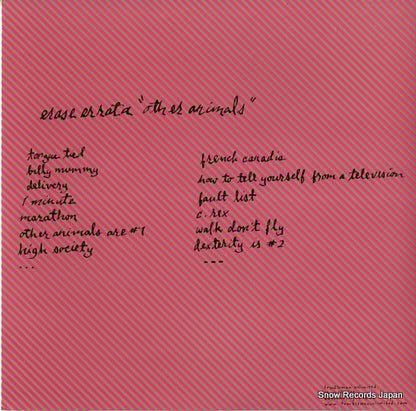 erase errata "other animals"
tongue tied
billy mummy
delivery
1 minute
marathon
other animals are #1
high society
...
french canadia
how to tell yourself from a television
fault list
c. rex
walk don't fly
dexterity is #2
---
Snow Records Japan